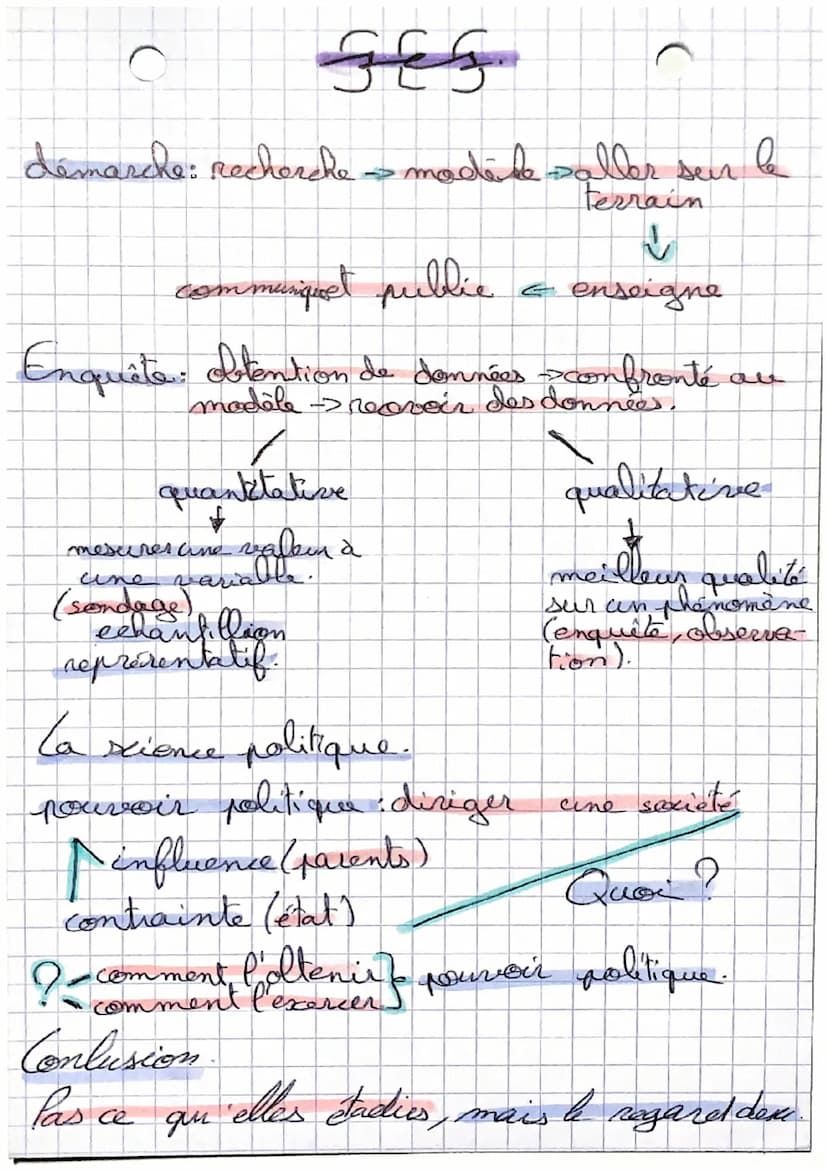 SES.
démarche: recherche → modèle → aller sur le
terrain
↓
communiquet public ← enseigne
Enquête: obtention de données → confronté au
modèle → recevoir des données.
quantitative qualitative
mesures une valeur à
une variable.
(sondage)
echantillion
représentatif.
meilleur qualité
sur un phénomène
(enquête, observa-
tion).
La science politique.
pouvoir politique : diriger une societé
influence (parents)
Quoi ?
contrainte (état)
? comment l'obtenir } pouvoir politique.
comment l'exercer
Conlusion.
Pas ce qu'elles étudies, mais le regard